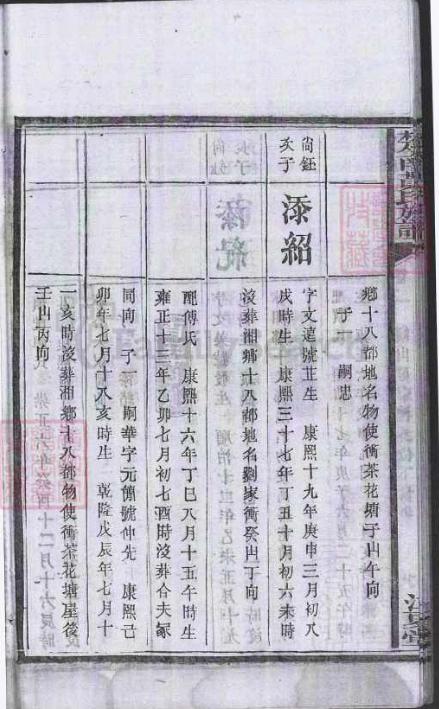 鄉十八都地名物使衝茶花塘子山午向
子一 嗣忠
尚鈺
次子
添紹
字文遠號芷生 康熙十九年庚申三月初八
戌時生 康熙三十七年丁丑十月初六未時
沒葬湘鄉十八都地名劉家衝癸山丁向
配傅氏 康熙十六年丁巳八月十五午時生
雍正十三年乙卯七月初七酉時沒葬合夫冢
同向 子一 嗣華字元 號仲先 康熙己
卯年七月十八亥時生 乾隆戊辰年七月十
一亥時沒葬湘鄉十八都物使衝茶花塘屋後
壬山丙向